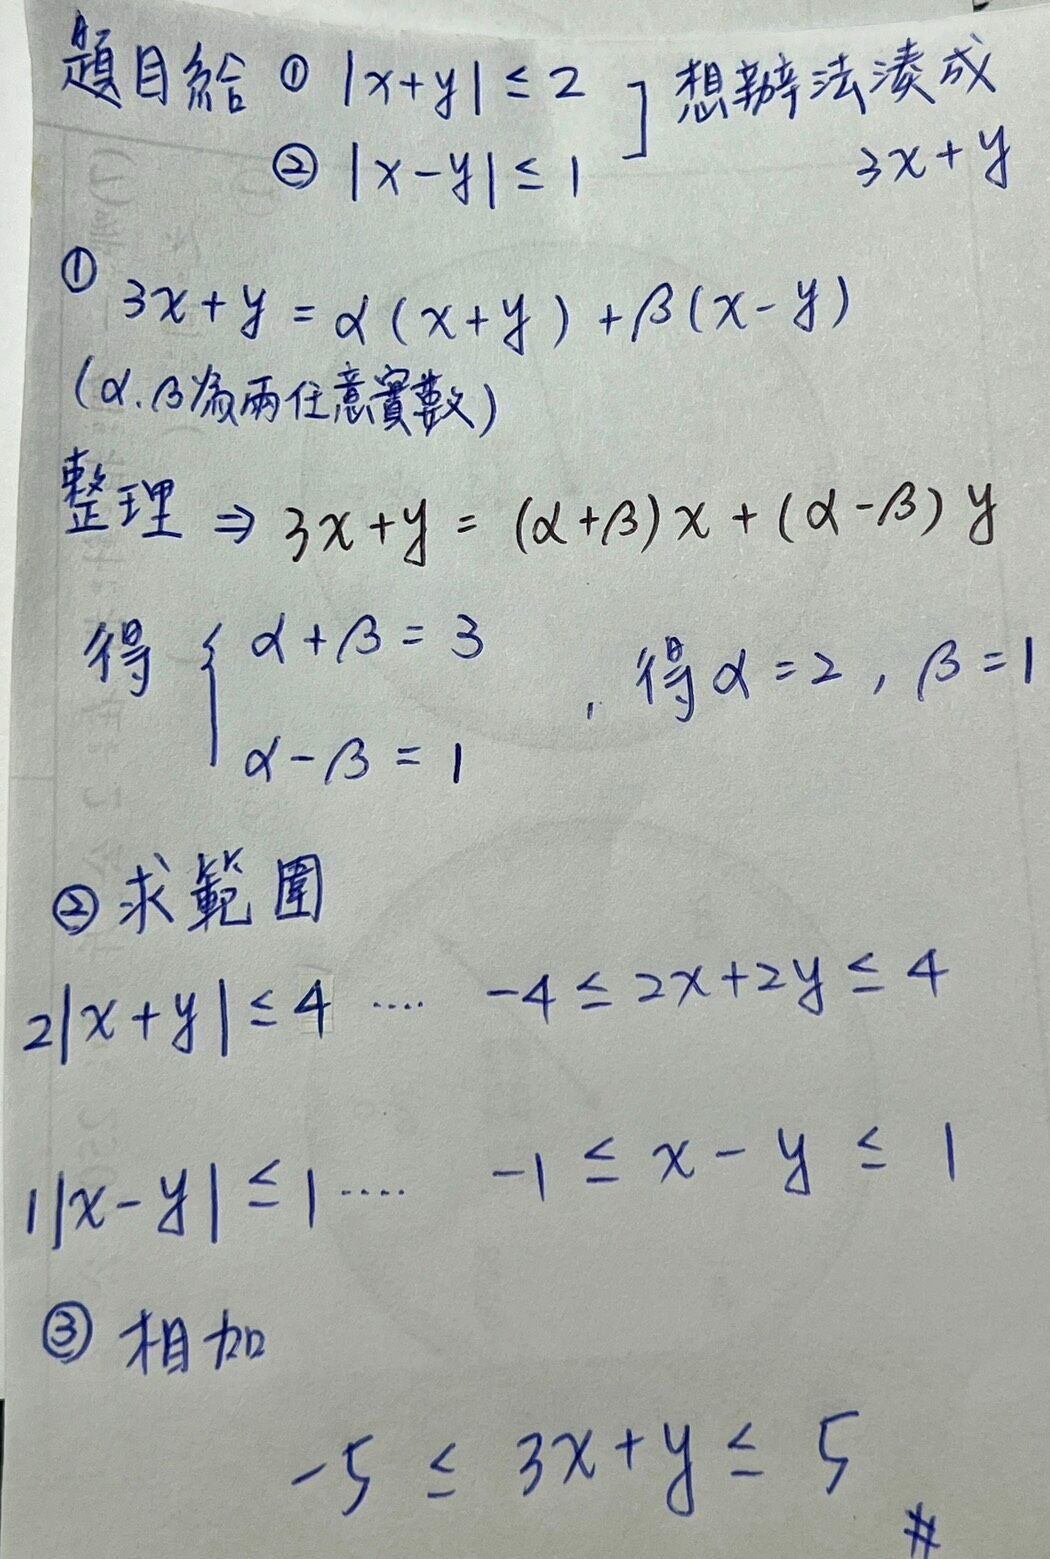 題目給 ① |x+y| ≤ 2 ] 想辦法湊成
② |x-y| ≤ 1 3x+y
①
3x+y = α(x+y)+β(x-y)
(α.β為兩任意實數)
整理 ⇒ 3x+y = (α+β)x+(α-β)y
得 { α+β = 3 , 得α=2, β=1
α-β = 1
② 求範圍
2|x+y| ≤ 4 .... -4 ≤ 2x+2y ≤ 4
1|x-y| ≤ 1 .... -1 ≤ x-y ≤ 1
③ 相加
-5 ≤ 3x+y ≤ 5
#